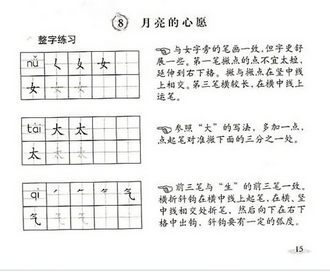 8 月亮的心愿
整字练习
nǚ 𡿨 女 女
女 女 女
与女字旁的笔画一致,但字更舒
展一些。第一笔撇点的点不宜太短,
延伸到右下格。撇与撇点在竖中线
上相交。第三笔横较长,在横中线上
运笔。
tài 大 太
太 太 太
参照“大”的写法,多加一点,
点起笔对准捺下面的三分之一处。
qì 气
气 气 气
前三笔与“生”的前三笔一致。
横折斜钩在横中线上起笔,在横、竖
中线相交处折笔,然后向下在右下
格中出钩,斜钩要有一定的弧度。
15